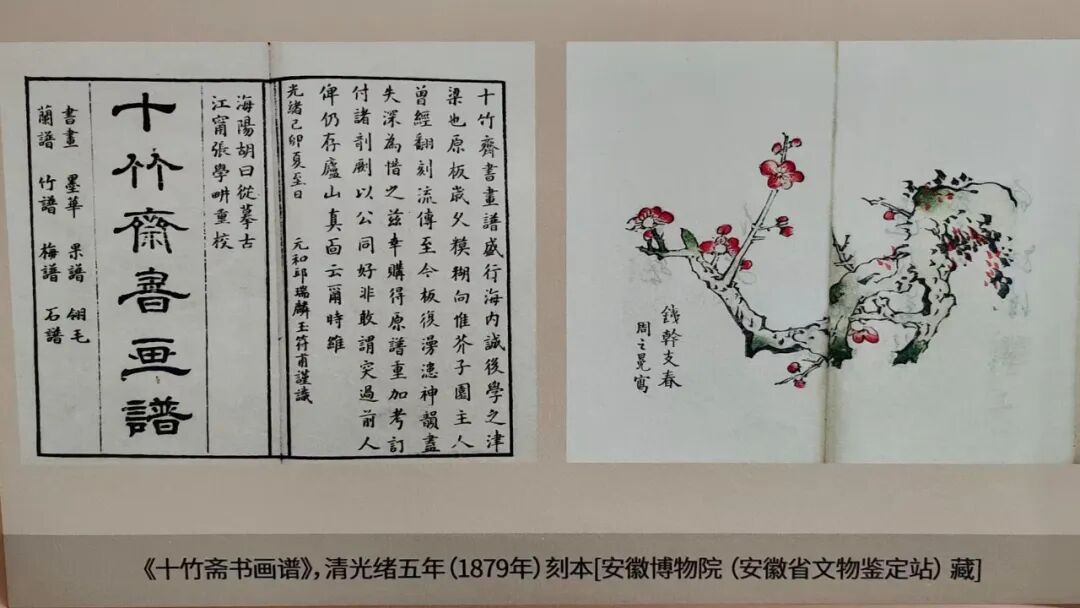 十竹齋書畫譜盛行海内誠後學之津
梁也原板歲久糢糊向惟芥子園主人
曾經翻刻流傳至今板復漫漶神韻盡
失深為惜之茲幸購得原譜重加考訂
付諸剞劂以公同好非敢謂突過前人
俾仍存廬山真面云爾時維
光緒己卯夏至日 元和邱瑞麟玉符甫謹識
海陽胡曰從摹古
江甯張學畊重校
十竹齋書画譜
書畫 墨華 果譜 翎毛
蘭譜 竹譜 梅譜 石譜
銕幹支春
周之冕寫
《十竹斋书画谱》，清光绪五年（1879年）刻本[安徽博物院（安徽省文物鉴定站）藏]